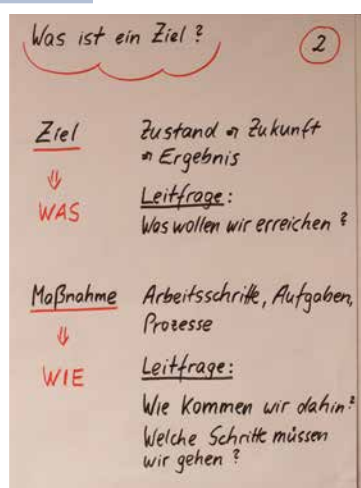 Was ist ein Ziel?
2
Ziel Zustand → Zukunft
→ Ergebnis
⇓ Leitfrage:
WAS Was wollen wir erreichen?
Maßnahme Arbeitsschritte, Aufgaben,
⇓ Prozesse
WIE Leitfrage:
Wie kommen wir dahin?
Welche Schritte müssen
wir gehen?